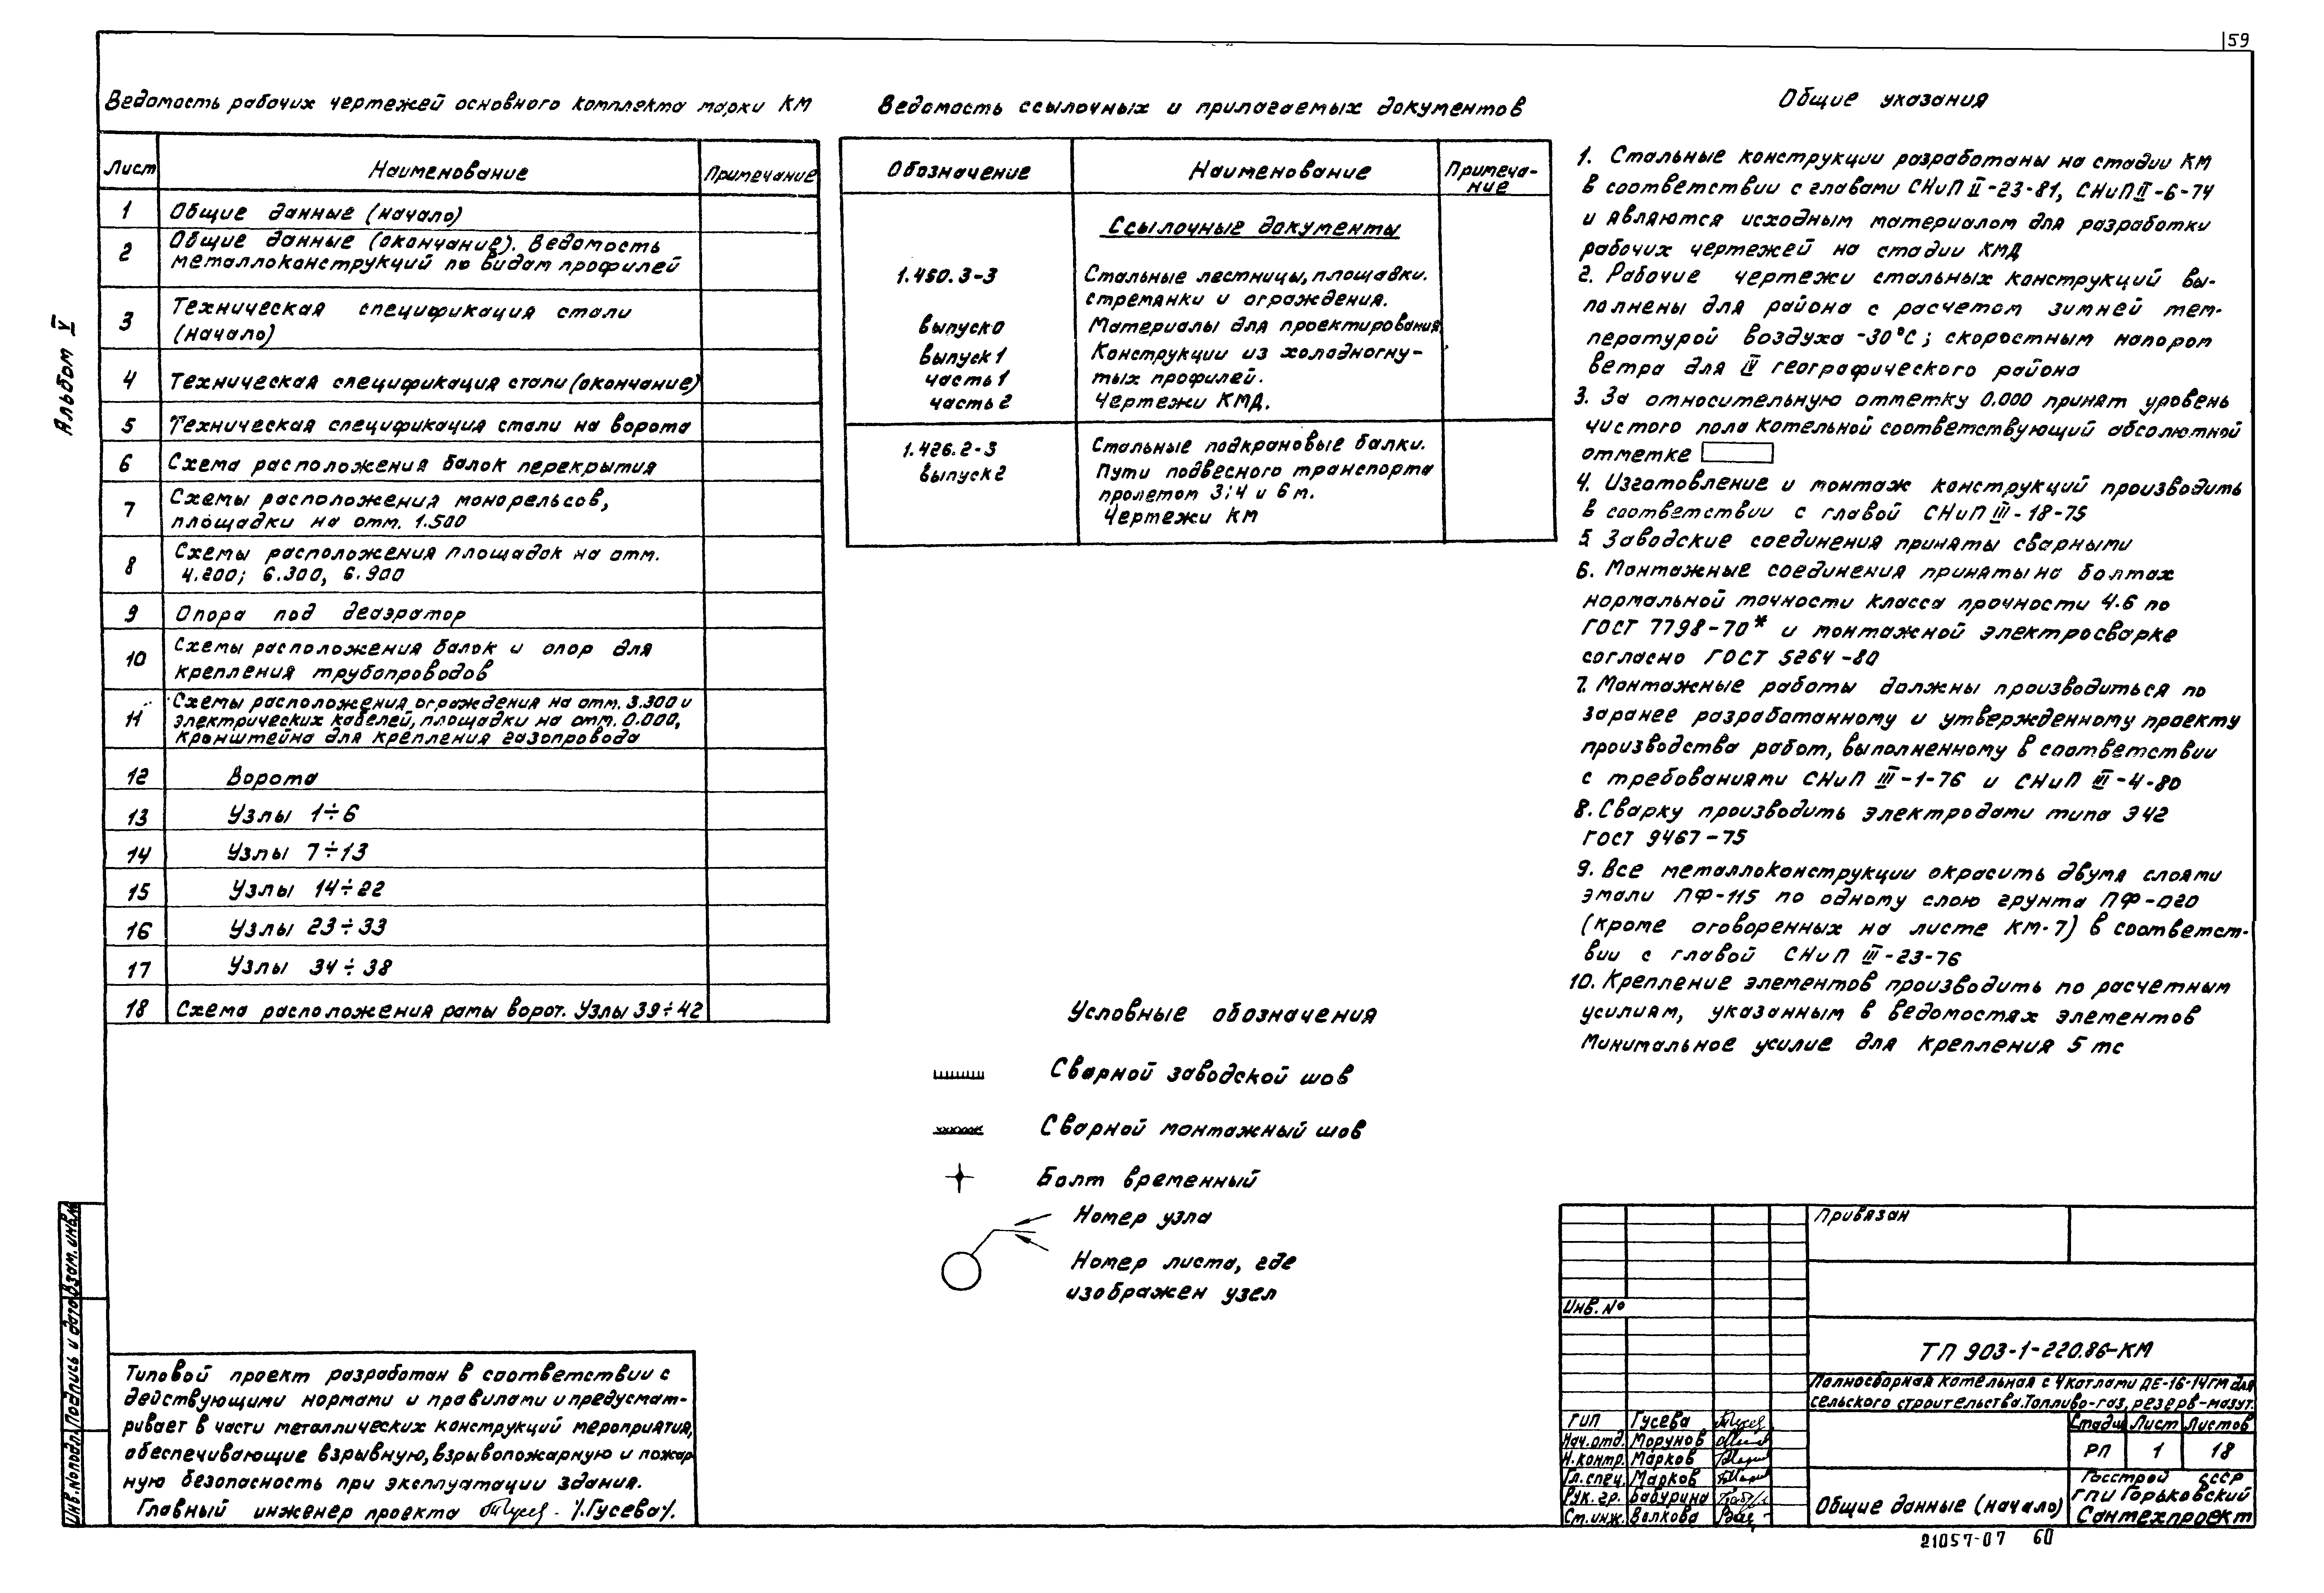 59
Альбом V
Ведомость рабочих чертежей основного комплекта марки КМ
Лист Наименование Примечание
1 Общие данные (начало)
2 Общие данные (окончание). Ведомость
металлоконструкций по видам профилей
3 Техническая спецификация стали
(начало)
4 Техническая спецификация стали (окончание)
5 Техническая спецификация стали на ворота
6 Схема расположения балок перекрытия
7 Схемы расположения монорельсов,
площадки на отм. 1.500
8 Схемы расположения площадок на отм.
4.200; 6.300, 6.900
9 Опора под деаэратор
10 Схемы расположения балок и опор для
крепления трубопроводов
11 Схемы расположения ограждения на отм. 3.300 и
электрических кабелей, площадки на отм. 0.000,
кронштейна для крепления газопровода
12 Ворота
13 Узлы 1÷6
14 Узлы 7÷13
15 Узлы 14÷22
16 Узлы 23÷33
17 Узлы 34÷38
18 Схема расположения рамы ворот. Узлы 39÷42
Ведомость ссылочных и прилагаемых документов
Обозначение Наименование Примеча-
ние
Ссылочные документы
1.450.3-3 Стальные лестницы, площадки.
стремянки и ограждения.
выпуск 0 Материалы для проектирования
выпуск 1 Конструкции из холодногну-
часть 1 тых профилей.
часть 2 Чертежи КМД.
1.426.2-3 Стальные подкрановые балки.
выпуск 2 Пути подвесного транспорта
пролетом 3; 4 и 6 м.
Чертежи КМ
Общие указания
1. Стальные конструкции разработаны на стадии КМ
в соответствии с главами СНиП II-23-81, СНиП II-6-74
и являются исходным материалом для разработки
рабочих чертежей на стадии КМД
2. Рабочие чертежи стальных конструкций вы-
полнены для района с расчетом зимней тем-
пературой воздуха -30°С; скоростным напором
ветра для IV географического района
3. За относительную отметку 0.000 принят уровень
чистого пола котельной соответствующий абсолютной
отметке
4. Изготовление и монтаж конструкций производить
в соответствии с главой СНиП III-18-75
5. Заводские соединения приняты сварными
6. Монтажные соединения приняты на болтах
нормальной точности класса прочности 4.6 по
ГОСТ 7798-70* и монтажной электросварке
согласно ГОСТ 5264-80
7. Монтажные работы должны производиться по
заранее разработанному и утвержденному проекту
производства работ, выполненному в соответствии
с требованиями СНиП III-1-76 и СНиП III-4-80
8. Сварку производить электродами типа Э42
ГОСТ 9467-75
9. Все металлоконструкции окрасить двумя слоями
эмали ПФ-115 по одному слою грунта ПФ-020
(кроме оговоренных на листе КМ-7) в соответст-
вии с главой СНиП III-23-76
10. Крепление элементов производить по расчетным
усилиям, указанным в ведомостях элементов
Минимальное усилие для крепления 5 тс
Условные обозначения
Сварной заводской шов
Сварной монтажный шов
Болт временный
Номер узла
Номер листа, где
изображен узел
Типовой проект разработан в соответствии с
действующими нормами и правилами и предусмат-
ривает в части металлических конструкций мероприятия,
обеспечивающие взрывную, взрывопожарную и пожар
ную безопасность при эксплуатации здания.
Главный инженер проекта /Гусева/.
Инв.№подл. Подпись и дата Взам.инв.№
Привязан
Инв. №
ТП 903-1-220.86-КМ
Полносборная котельная с 4 котлами ДЕ-16-14ГМ для
сельского строительства. Топливо-газ, резерв-мазут.
ГИП Гусева
Нач.отд. Морунов
Н.контр. Марков
Гл.спец. Марков
Рук. гр. Бабурина
Ст.инж. Волкова
Стадия Лист Листов
РП 1 18
Общие данные (начало)
Госстрой СССР
ГПИ Горьковский
Сантехпроект
21057-07 60